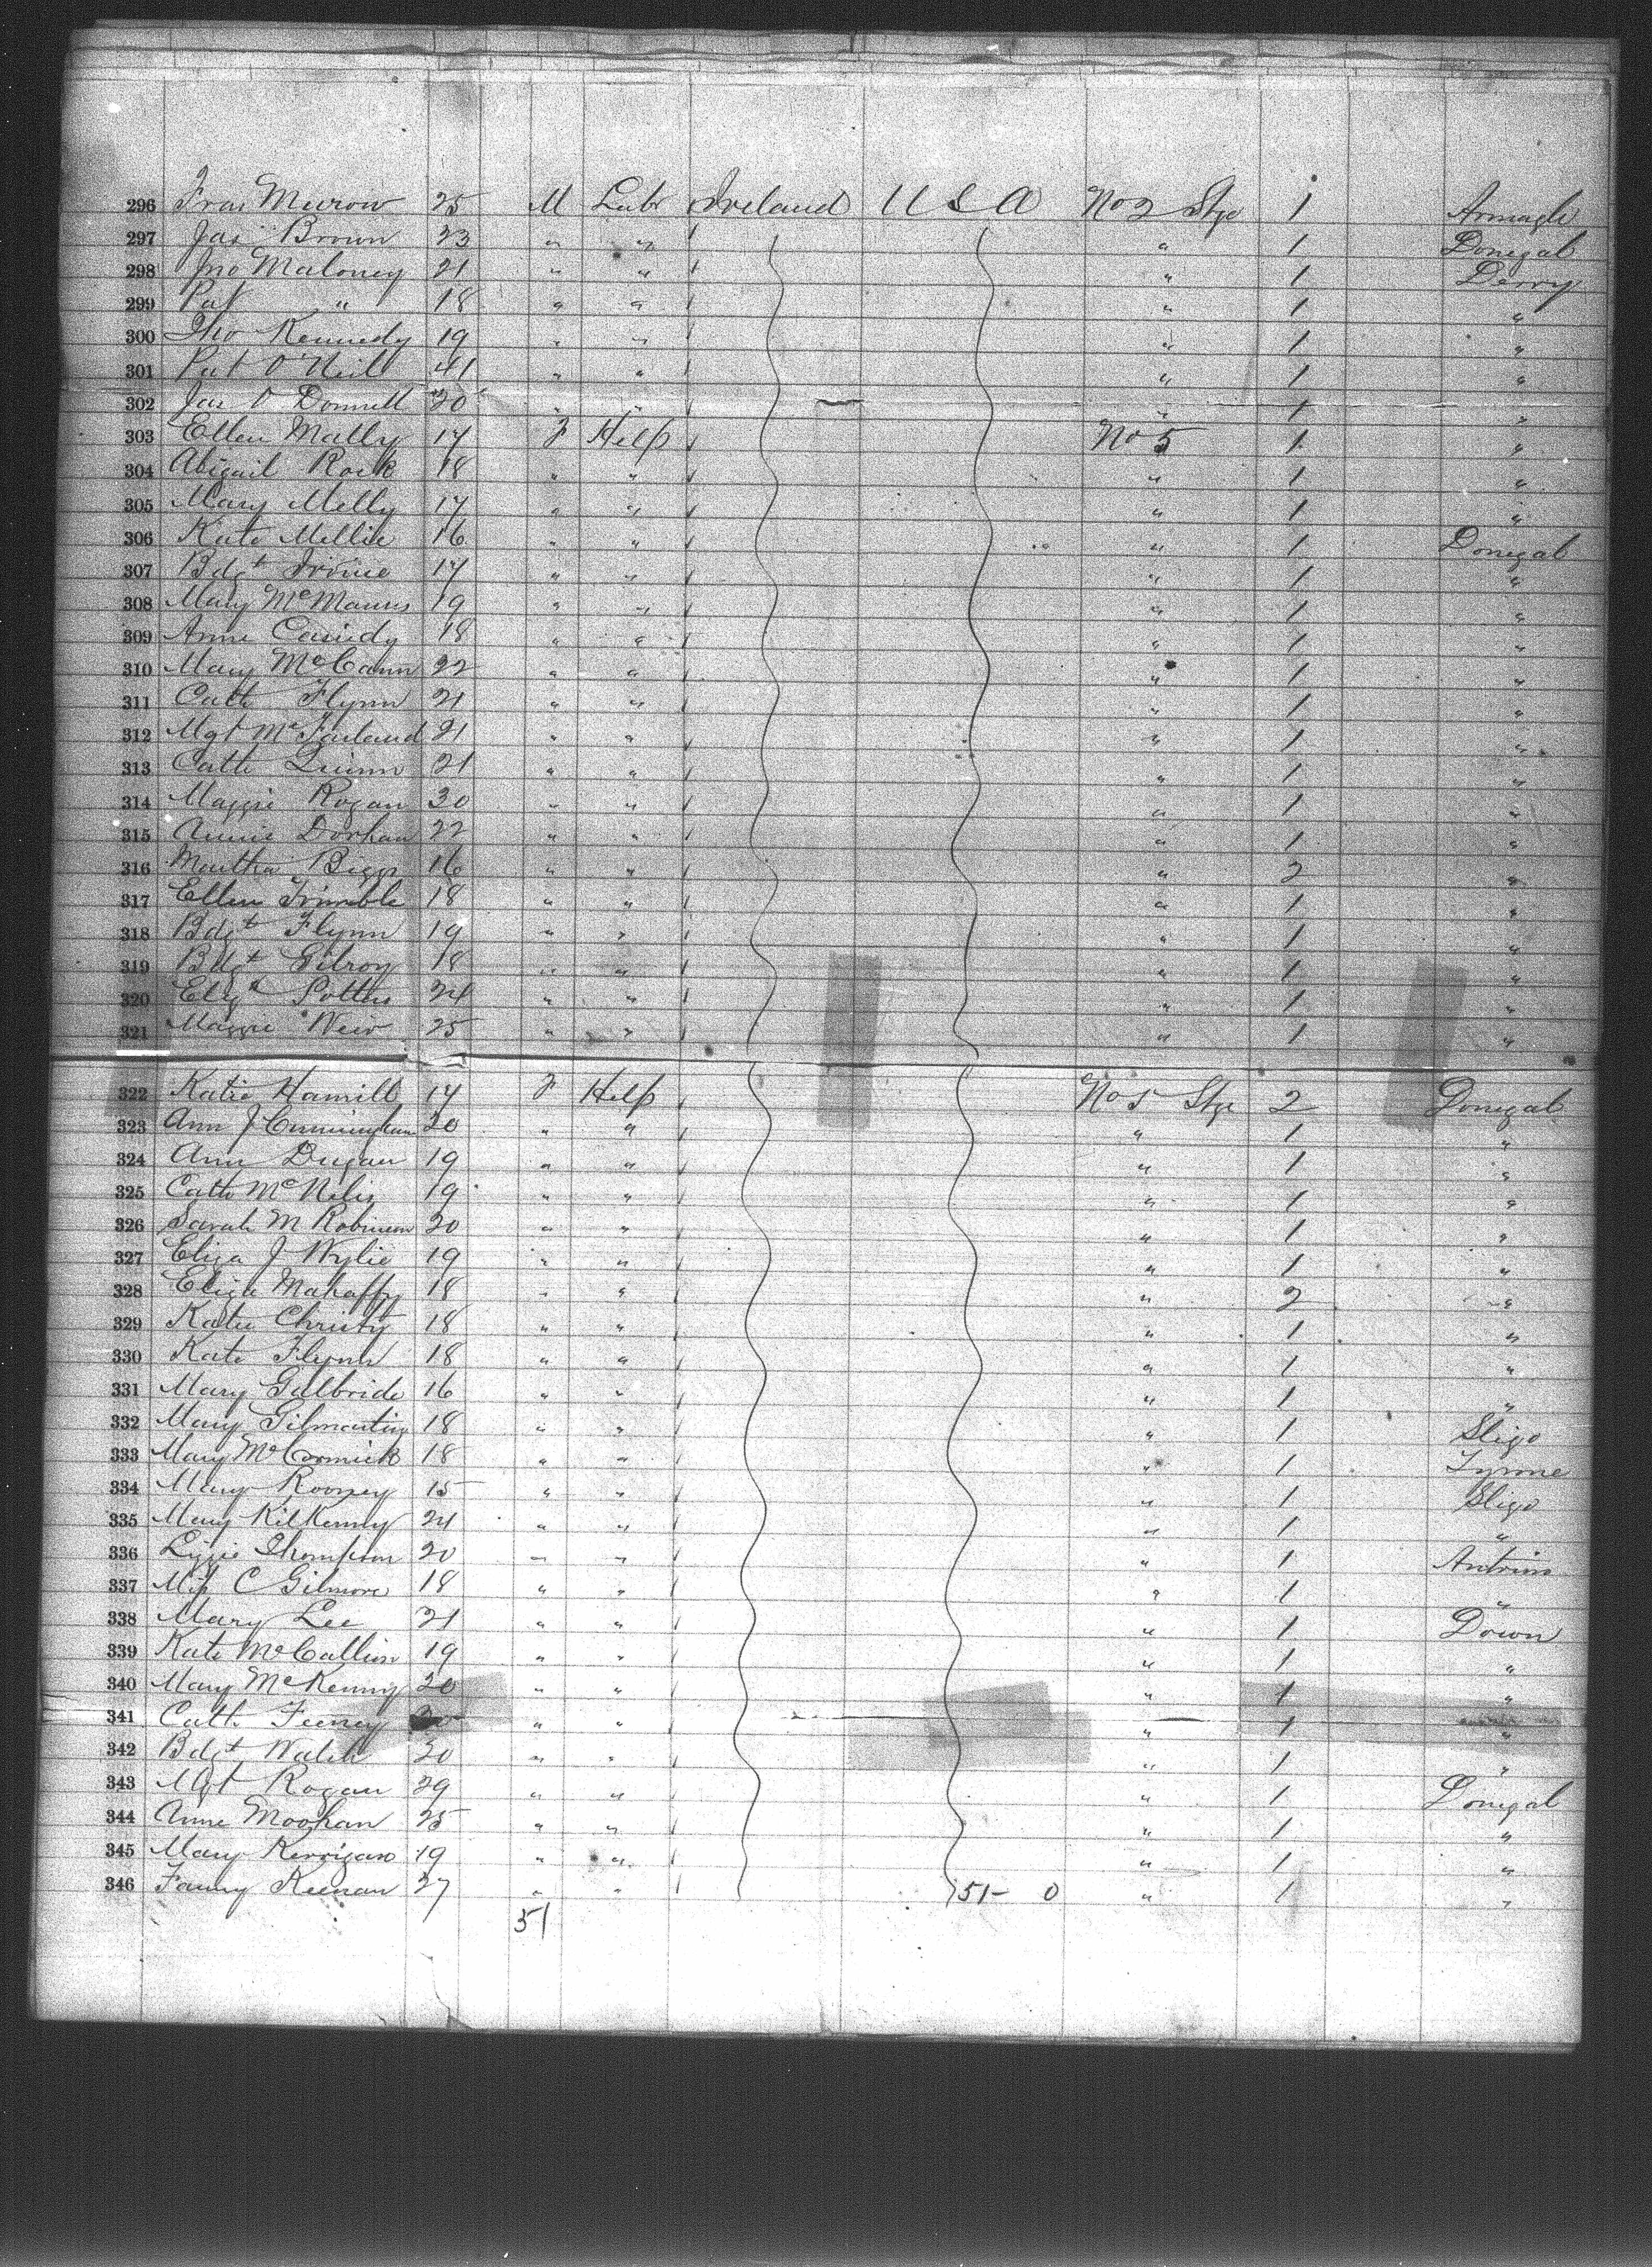 296 Fras Murow 25 M Labr Ireland U S A No 2 Stge 1 Armagh
297 Jas Brown 23 " " " 1 Donegal
298 Jno Maloney 21 " " " 1 Derry
299 Pat " 18 " " " 1 "
300 Tho Kennedy 19 " " " 1 "
301 Pat O'Neill 41 " " " 1 "
302 Jas O Donnell 20 " " " 1 "
303 Ellen Mally 17 F Help No 5 1 "
304 Abigail Rock 18 " " " 1 "
305 Mary Melly 17 " " " 1 "
306 Kate Mellie 16 " " " 1 Donegal
307 Bdgt Irvine 17 " " " 1 "
308 Mary McManus 19 " " " 1 "
309 Anne Casidy 18 " " " 1 "
310 Mary McCann 22 " " " 1 "
311 Cath Flynn 21 " " " 1 "
312 Mgt McFarland 21 " " " 1 "
313 Cath Quinn 21 " " " 1 "
314 Maggie Rogan 30 " " " 1 "
315 Annie Dorhan 22 " " " 1 "
316 Martha Biggs 16 " " " 2 "
317 Ellen Trimble 18 " " " 1 "
318 Bdgt Flynn 19 " " " 1 "
319 Bdgt Gilroy 18 " " " 1 "
320 Elizh 24 " " " 1 "
321 Maggie Weir 25 " " " 1 "
322 Katie Hamill 17 F Help No 5 Stge 2 Donegal
323 Ann J Cunningham 20 " " " 1 "
324 Ann Dugan 19 " " " 1 "
325 Cath McNelis 19 " " " 1 "
326 Sarah M Robinson 20 " " " 1 "
327 Eliza J Wylie 19 " " " 1 "
328 Eliza Mahaffy 18 " " " 2 "
329 Katie Christy 18 " " " 1 "
330 Kate Flynn 18 " " " 1 "
331 Mary Gilbride 16 " " " 1 "
332 Mary Gilmartin 18 " " " 1 Sligo
333 Mary McCormick 18 " " " 1 Tyrone
334 Mary Rooney 15 " " " 1 Sligo
335 Mary Kilkenny 24 " " " 1 "
336 Lizzie Thompson 20 " " " 1 Antrim
337 Miss C Gilmore 18 " " " 1 "
338 Mary Lee 21 " " " 1 Down
339 Kate McCallion 19 " " " 1 "
340 Mary McKenny 20 " " " 1 "
341 Cath Feeney " " " 1 "
342 Bdgt Walsh 20 " " " 1 "
343 Mgt Rogan 29 " " " 1 Donegal
344 Anne Moohan 25 " " " 1 "
345 Mary Kerrigan 19 " " " 1 "
346 Fanny Keenan 27 " " 51- 0 " 1 "
51